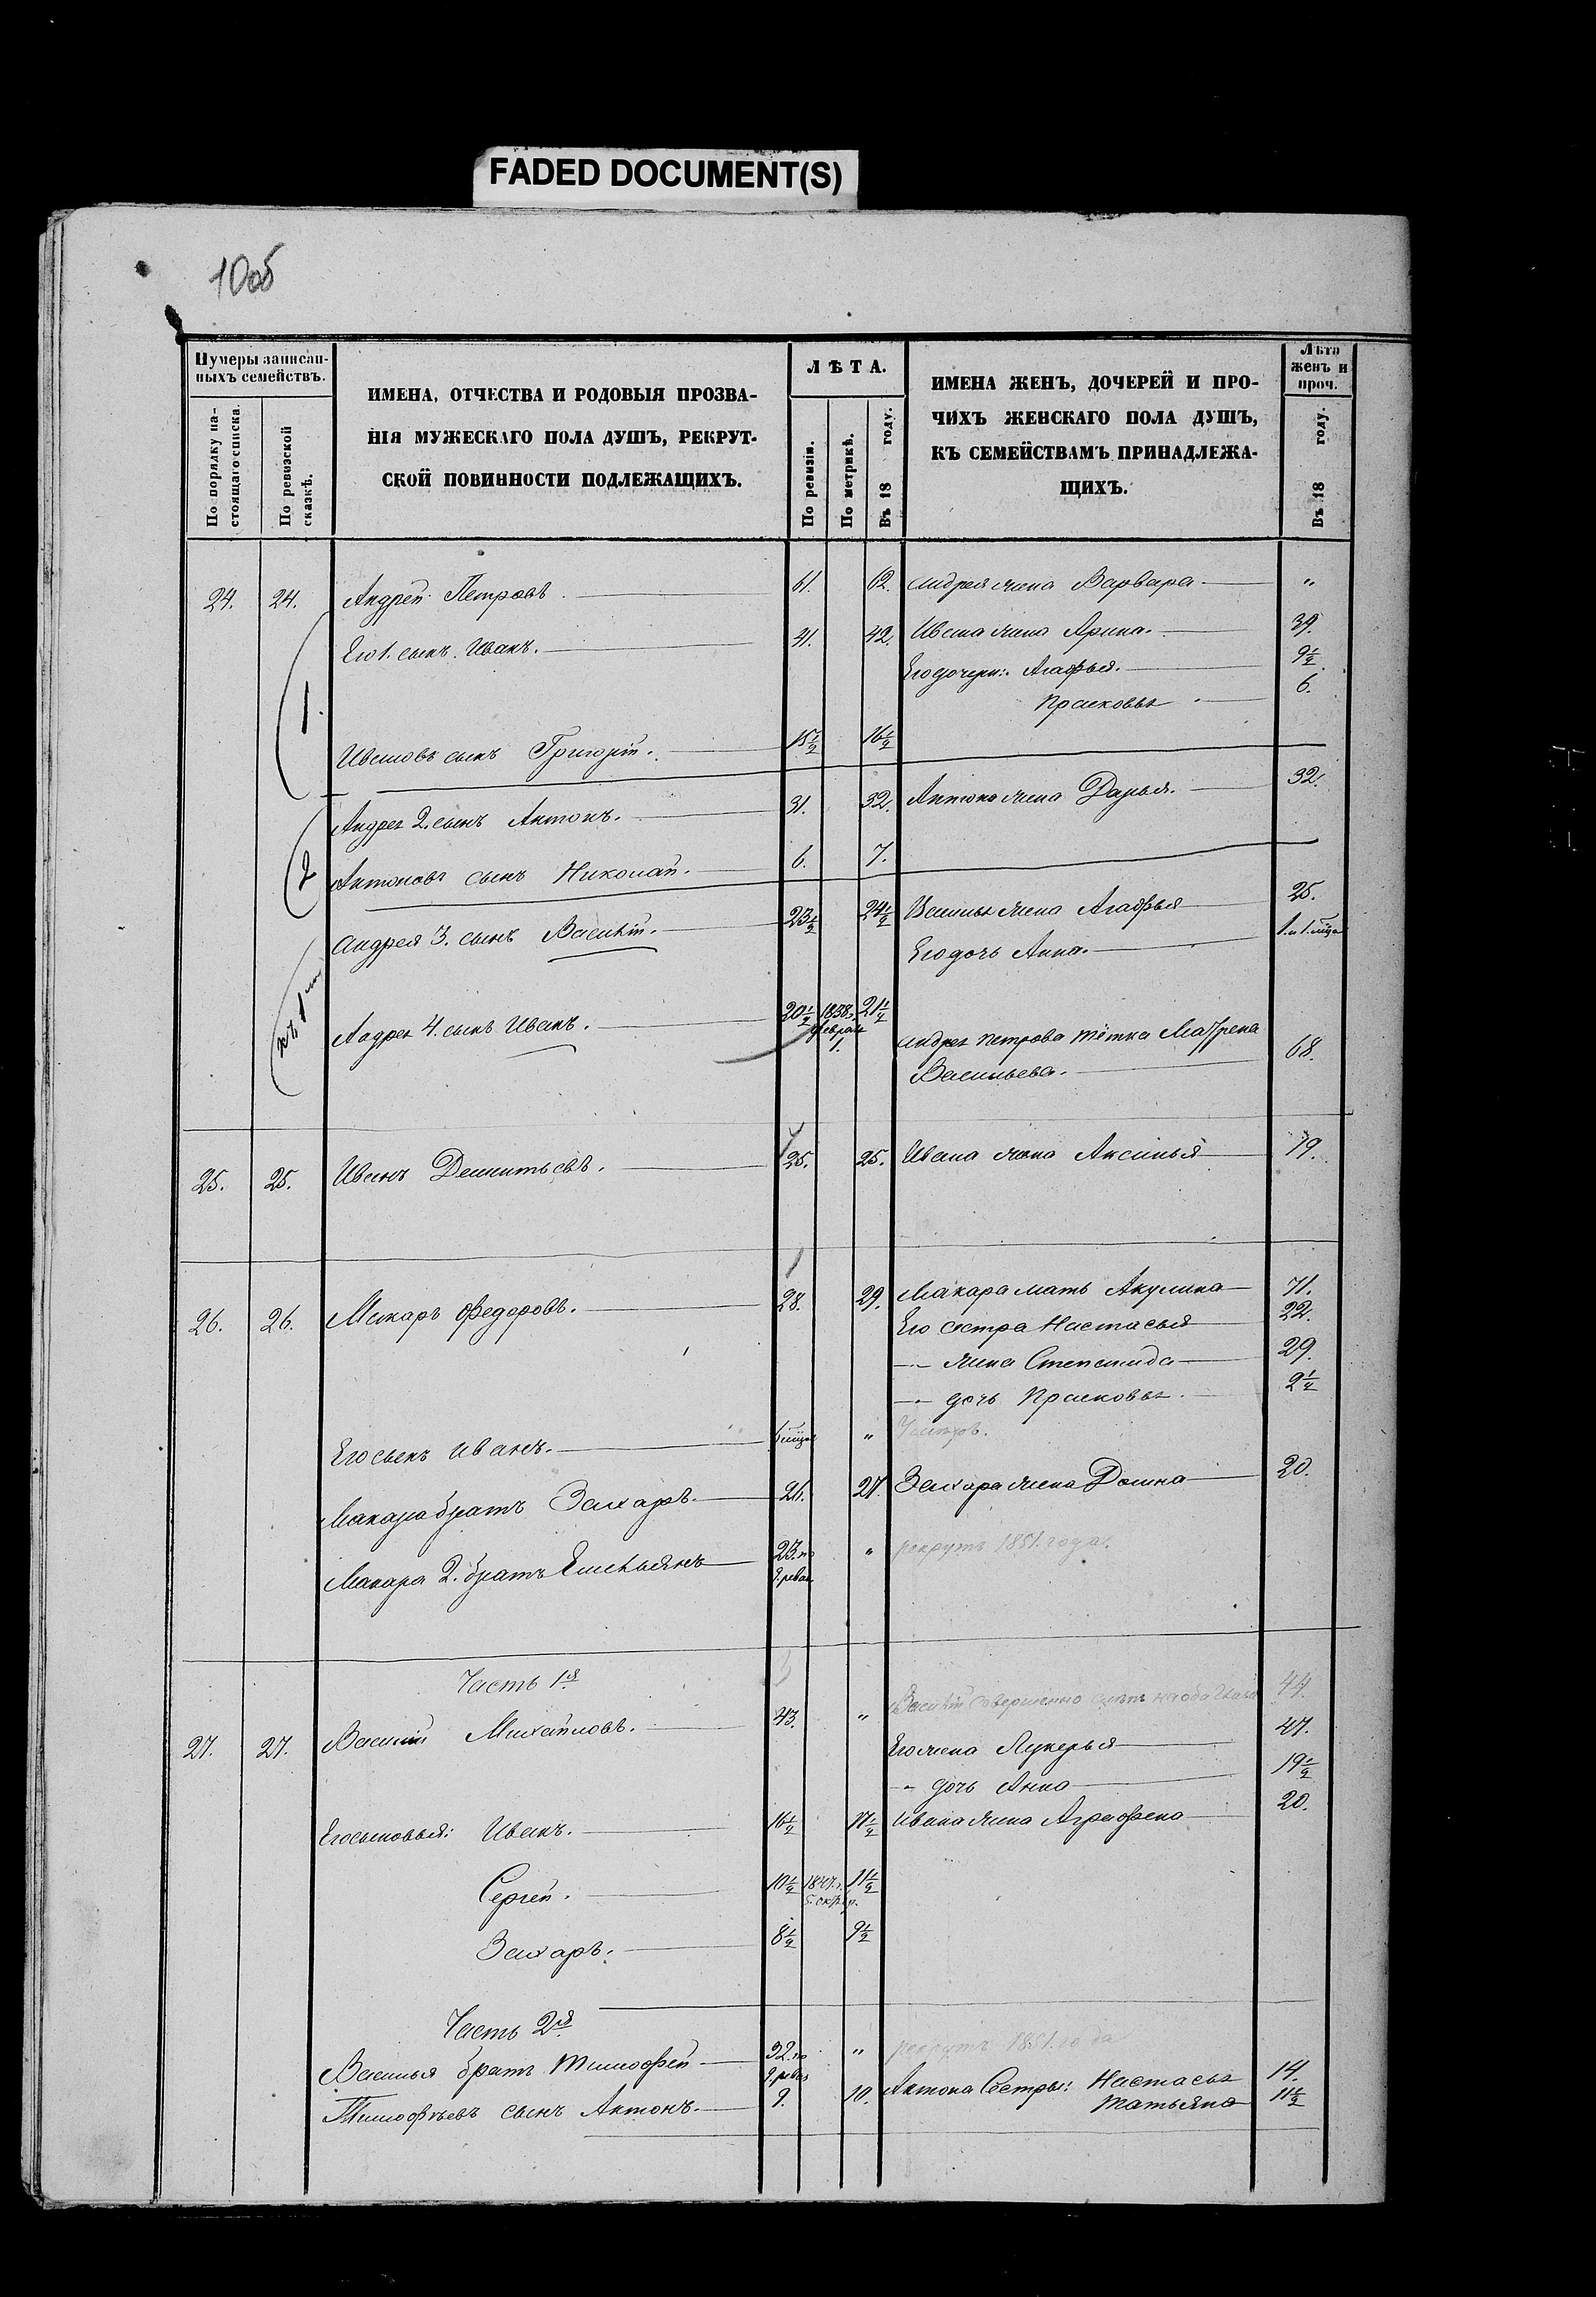 FADED DOCUMENT(S)
10об
Нумеры записан-
ныхъ семействъ.
По порядку на-
стоящаго списка.
По ревизской
сказкѣ.
ИМЕНА, ОТЧЕСТВА И РОДОВЫЯ ПРОЗВА-
НІЯ МУЖЕСКАГО ПОЛА ДУШЪ, РЕКРУТ-
СКОЙ ПОВИННОСТИ ПОДЛЕЖАЩИХЪ.
ЛѢТА.
По ревизіи.
По метрикѣ.
Въ 18 году.
ИМЕНА ЖЕНЪ, ДОЧЕРЕЙ И ПРО-
ЧИХЪ ЖЕНСКАГО ПОЛА ДУШЪ,
КЪ СЕМЕЙСТВАМЪ ПРИНАДЛЕЖА-
ЩИХЪ.
Лѣта
женъ и
проч.
Въ 18 году.
24. 24. Андрей Петровъ. 61. 62. Андрея жена Варвара „
Его 1. сынъ Иванъ. 41. 42. Ивана жена Арина. 39.
Его дочери: Агафья. 9½
1. Прасковья 6.
Ивановъ сынъ Григорій. 15½ 16½
Андрея 2. сынъ Антонъ. 31. 32. Антона жена Дарья. 32.
2 Антоновъ сынъ Николай. 6. 7.
Андрея 3. сынъ Василій. 23½ 24½ Василья жена Агафья 25.
Его дочь Анна. 1. и 1. мѣся
къ 1
Андрея 4. сынъ Иванъ. 20½ 1838 г. 21½
февраля
1.
Андрея Петрова тётка Матрена
Васильева. 68.
25. 25. Иванъ Дементьевъ. 25. 25. Ивана жена Аксинья 19.
26. 26. Макаръ Федоровъ. 28. 29. Макара мать Акулина 71.
Его сестра Настасья 22.
— жена Степанида 29.
— дочь Прасковья 2½
Его сынъ Иванъ. „
Макара братъ Захаръ. 26. 27. Захара жена Домна 20.
Макара 2. братъ Емельянъ 23. по „ рекрутъ 1851. года.
9. ревиз
Часть 1я
27. 27. Василій Михайловъ. 43. „ Василій совершенно слѣпъ на оба глаза 44.
Его жена Лукерья 47.
„ дочь Анна 19½
Его сыновья: Иванъ. 16½ 17½ Ивана жена Аграфена 20.
Сергей. 10½ 1847 г. 11½
Захаръ. 8½ 9½
Часть 2я
Василья братъ Тимофей 32. по „ рекрутъ 1851. года
9. ревиз
Тимофѣевъ сынъ Антонъ. 9. 10. Антона Сестры: Настасья 14.
Татьяна 11½